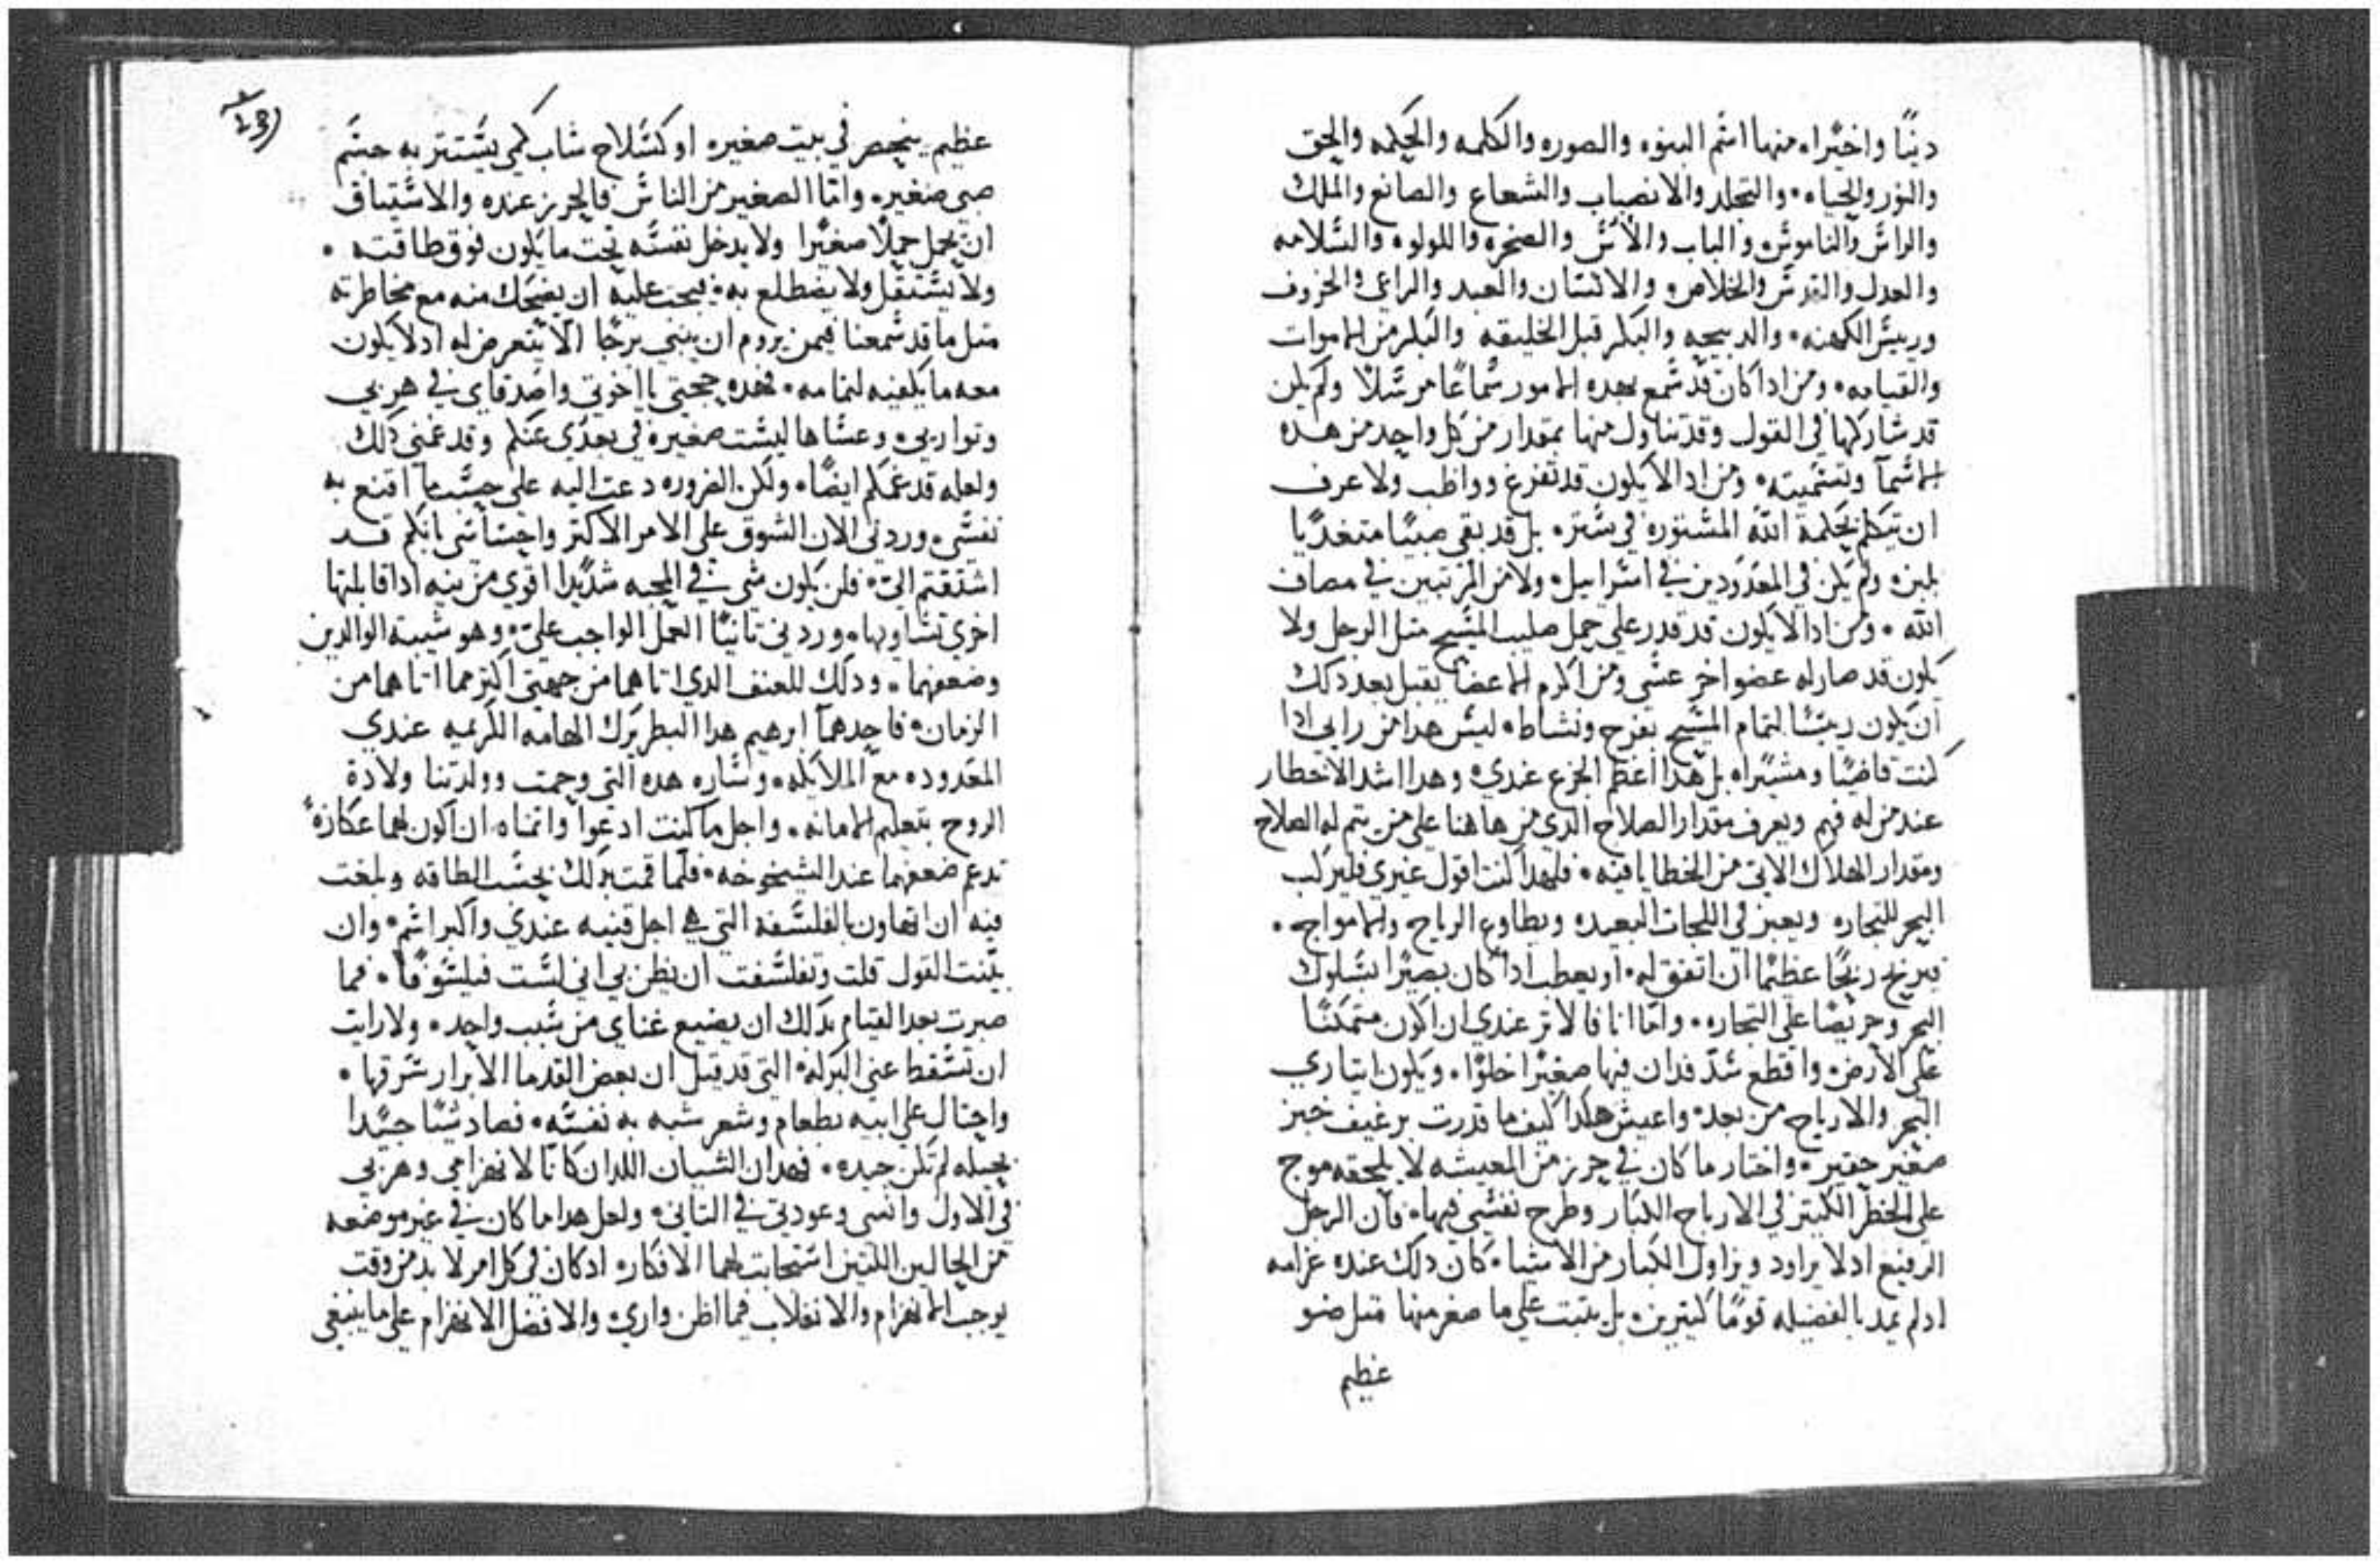 دينًا واخيرًا، منها اسم البنوه والصوره والكلمه والحكمه والحق
والنور والحياه، والتجلد والانصباب والشعاع والصانع والملك
والراس والناموس والباب والأس والصخره واللولوه والسلامه
والعدل والقدس والخلاص والانسان والعبد والراعي والخروف
ورييس الكهنه، والدبيحه والبكر قبل الخليقه والبكر من الاموات
والقيامه، ومن ادا كان قد سمع بهده الامور سماعًا مرسلًا ولم يكن
قد شاركها في القول وقد تناول منها بمقدار من كل واحد من هده
الاسمآ وتسميته، ومن اد الا يكون قد تفرغ وواظب ولا عرف
ان يتكلم بحكمة الله المستوره في ستر، بل قد بقي صبيًا متغديًا
بلبن، ولم يكن في المعدودين في اسراييل، ولا من المرتبين في مصاف
الله، ومن ادا لا يكون قد قدر على حمل صليب المسيح متل الرجل ولا
يكون قد صار له عضو اخر عسى ومن اكرم الاعضا يقبل بعد دلك
ان يكون ريسًا لتمام المسيح بفرح ونشاط، ليس هدا من رايي ادا
كنت قاضيًا ومشيرًا، بل هدا اعظم الجزع عندي، وهدا اشد الاخطار
عند من له فهم ويعرف مقدار الصلاح الدي من هاهنا على من يتم له الصلاح
ومقدار الهلاك الاتي من الخطايا فيه، فلهدا كنت اقول غيري فليركب
البحر للتجاره ويعبر في اللجات البعيده ويطاوع الرياح والامواج،
فيربح ربحًا عظيمًا ان اتفق له، او يعطب ادا كان بصيرًا بسلوك
البحر وحريصًا على التجاره، واما انا فالاتر عندي ان اكون متمكنًا
على الأرض، واقطع شد فدان فيها صغيرًا خلوًا، ويكون ايتاري
البحر والارباح من بعد، واعيش هكدا كيف ما قدرت برغيف خبز
صغير حقير، واختار ما كان في حرز من المعيشه لا يلحقه موج
على الخطر الكبير في الارباح الكبار وطرح نفسي فيها، فان الرجل
الرفيع ادلا يراود ويزاول الكبار من الاشيا، كان دلك عنده غرامه
ادلم يمد بالفضيله قومًا كتيرين، بل يتبت على ما صغر منها متل ضو
عظيم
عظيم ينحصر في بيت صغير، او كسلاح شاب كمي يستتر به جسم
صبي صغير، واما الصغير من الناس فالحرز عنده والاستيتاق
ان يحمل حملًا صغيرًا ولا يدخل نفسه تحت ما يكون فوق طاقته،
ولا يستقل ولا يضطلع به، فيحق عليه ان يضحك منه مع مخاطرته
متل ما قد سمعنا فيمن يروم ان يبني برجًا الا يتعرض له ادلا يكون
معه ما يكفيه لتمامه، فهده حجتي يا اخوتي واصدقاي في هربي
وتواريي، وعساها ليست صغيره في بعدي عنكم وقد غمني دلك
ولعله قد غمكم ايضًا، ولكن الضروره دعت اليه على حسب ما اقنع به
نفسي، وردني الان الشوق على الامر الاكتر واحتساسي بانكم قد
اشتقتم الي، فلن يكون شي في المحبه شديدًا اقوى من نيه ادا قابلتها
اخرى تساويها، وردني تانيًا العمل الواجب علي، وهو شيبة الوالدين
وضعفهما، ودلك للعنف الدي اتاهما من جهتي اكتر مما اتاهما من
الزمان، فاحدهمآ ابرهيم هدا البطريرك الهامه الكريمه عندي
المعدوده مع الملايكه، وساره هده التي وحمت وولدتنا ولادة
الروح بتعليم الامانه، واجل ما كنت ادعوا واتمناه، ان اكون لهما عكازةً
تدعم ضعفهما عند الشيخوخه، فلما قمت بدلك بحسب الطاقه وبلغت
فيه ان اتهاون بالفلسفه التي هي اجل قنيه عندي واكبر اسم، وان
بينت القول قلت وتفلسفت ان يظن بي اني لست فيلسوفًا، فما
صبرت بعد القيام بدلك ان يضيع غناي من سبب واحد، ولا رايت
ان تسقط عني البركه، التي قد قيل ان بعض القدما الابرار سرقها،
واحتال على ابيه بطعام وشعر شبه به نفسه، فصاد شيًا جيدًا
بحيله لم تكن جيده، فهدان السببان اللدان كانا لانهزامي وهربي
في الاول وانسي وعودتي في التاني، ولعل هدا ما كان في غير موضعه
من الحالين اللتين استجابت لهما الافكار، ادكان في كل امر لا بد من وقت
يوجب الانهزام والانغلاب فيما اظن واري، والافضل الانهزام على ما ينبغي